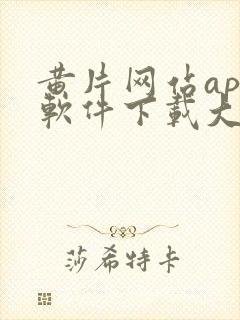 黄片网站ap
软件下载大
莎希特卡